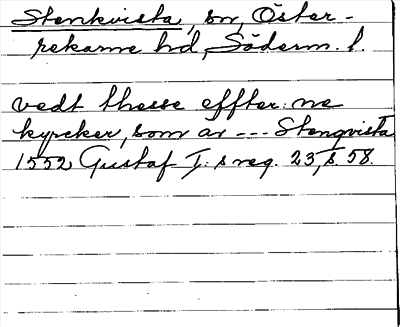 Stenkvista, sn, Öster-
rekarne hd, Söderm. l.
vedt thesse effter: ne
kyrcker, som ar --- Stengvista
1552 Gustaf I: s reg. 23, s. 58.